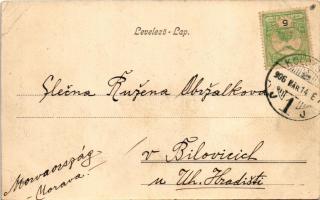 Levelező-Lap.
5
906 MÁR. 14
1
Slečna Ružena Obržalkova
v Bilovicich
u Uh. Hradiště
Morvaország
Morava